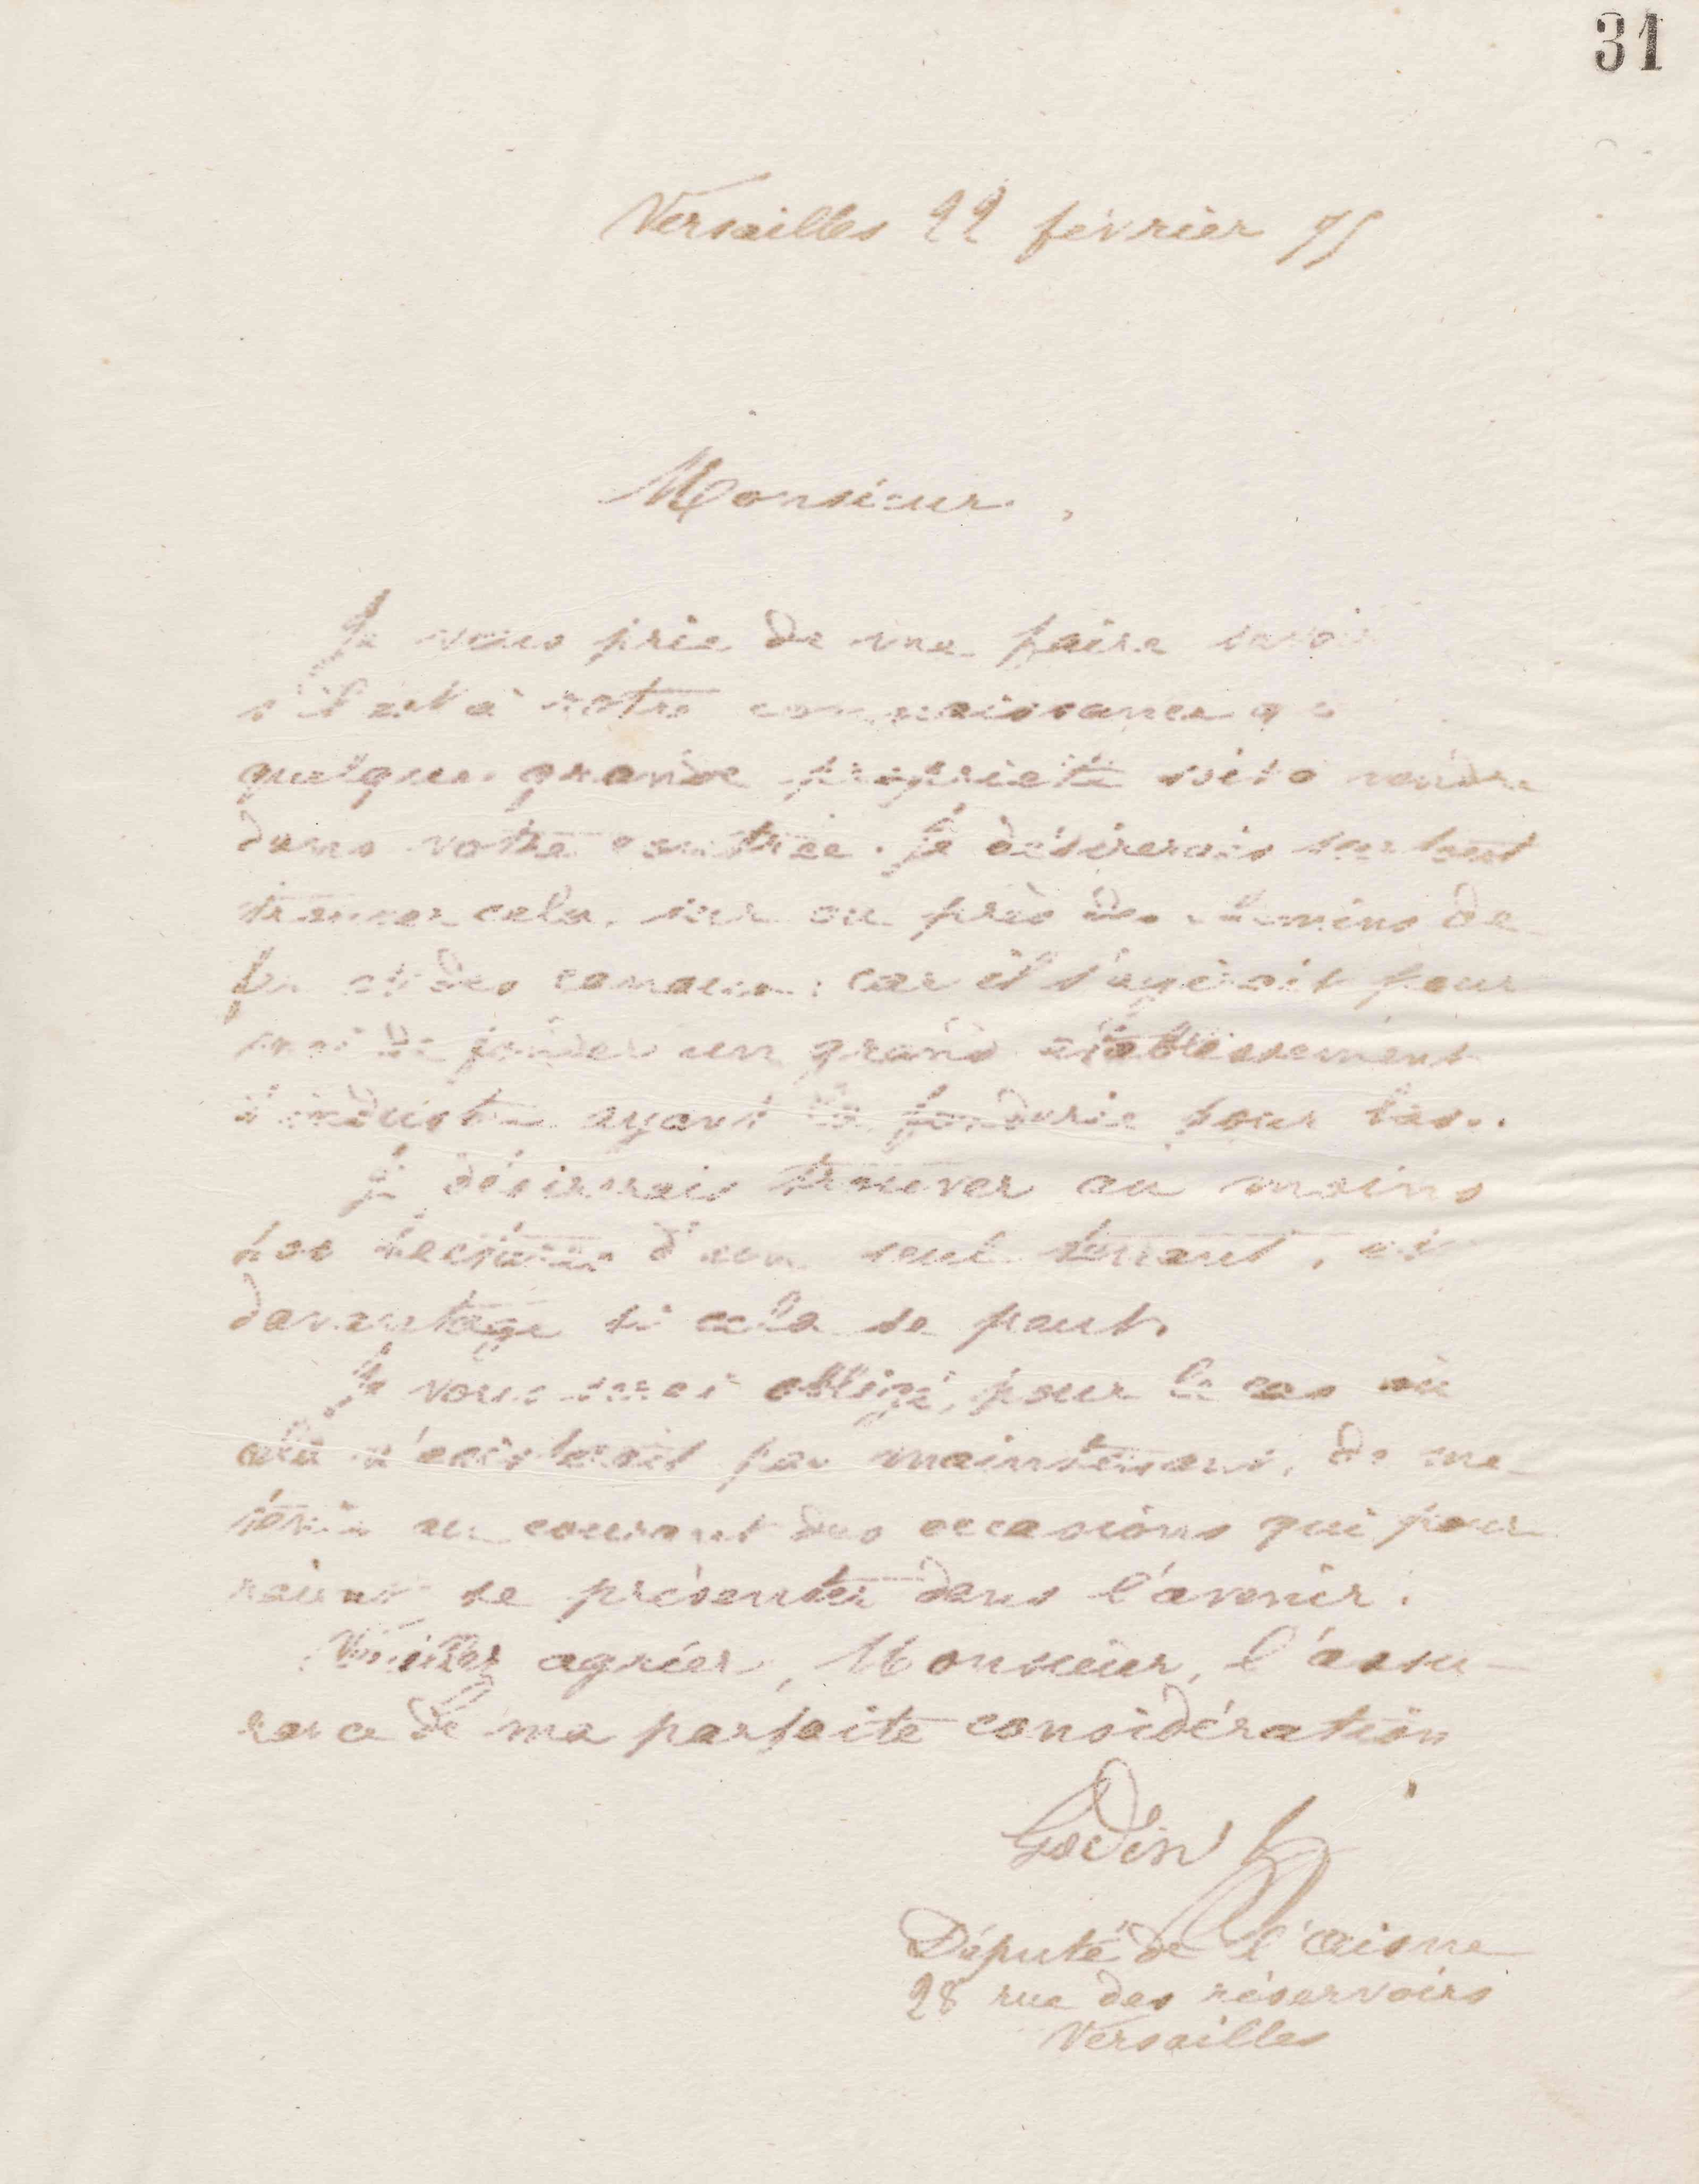 31
Versailles 22 février 75
Monsieur,
Je vous prie de me faire savoir
s'il est à votre connaissance
quelque grande propriété soit à vendre
dans votre contrée. Je désirerais surtout
trouver cela, sur ou près des chemins de
fer et des canaux : car il s'agirait pour
moi de fonder un grand établissement
d'industrie ayant la fonderie pour base.
Je désirerais trouver au moins
hectares d'un seul tenant, et
davantage si cela se peut.
Je vous serai obligé, pour le cas où
cela n'existerait pas maintenant, de me
tenir au courant des occasions qui pour
raient se présenter dans l'avenir.
Veuillez agréer, Monsieur, l'assu-
rance de ma parfaite considération
Godin
Député de l'Aisne
28 rue des réservoirs
Versailles